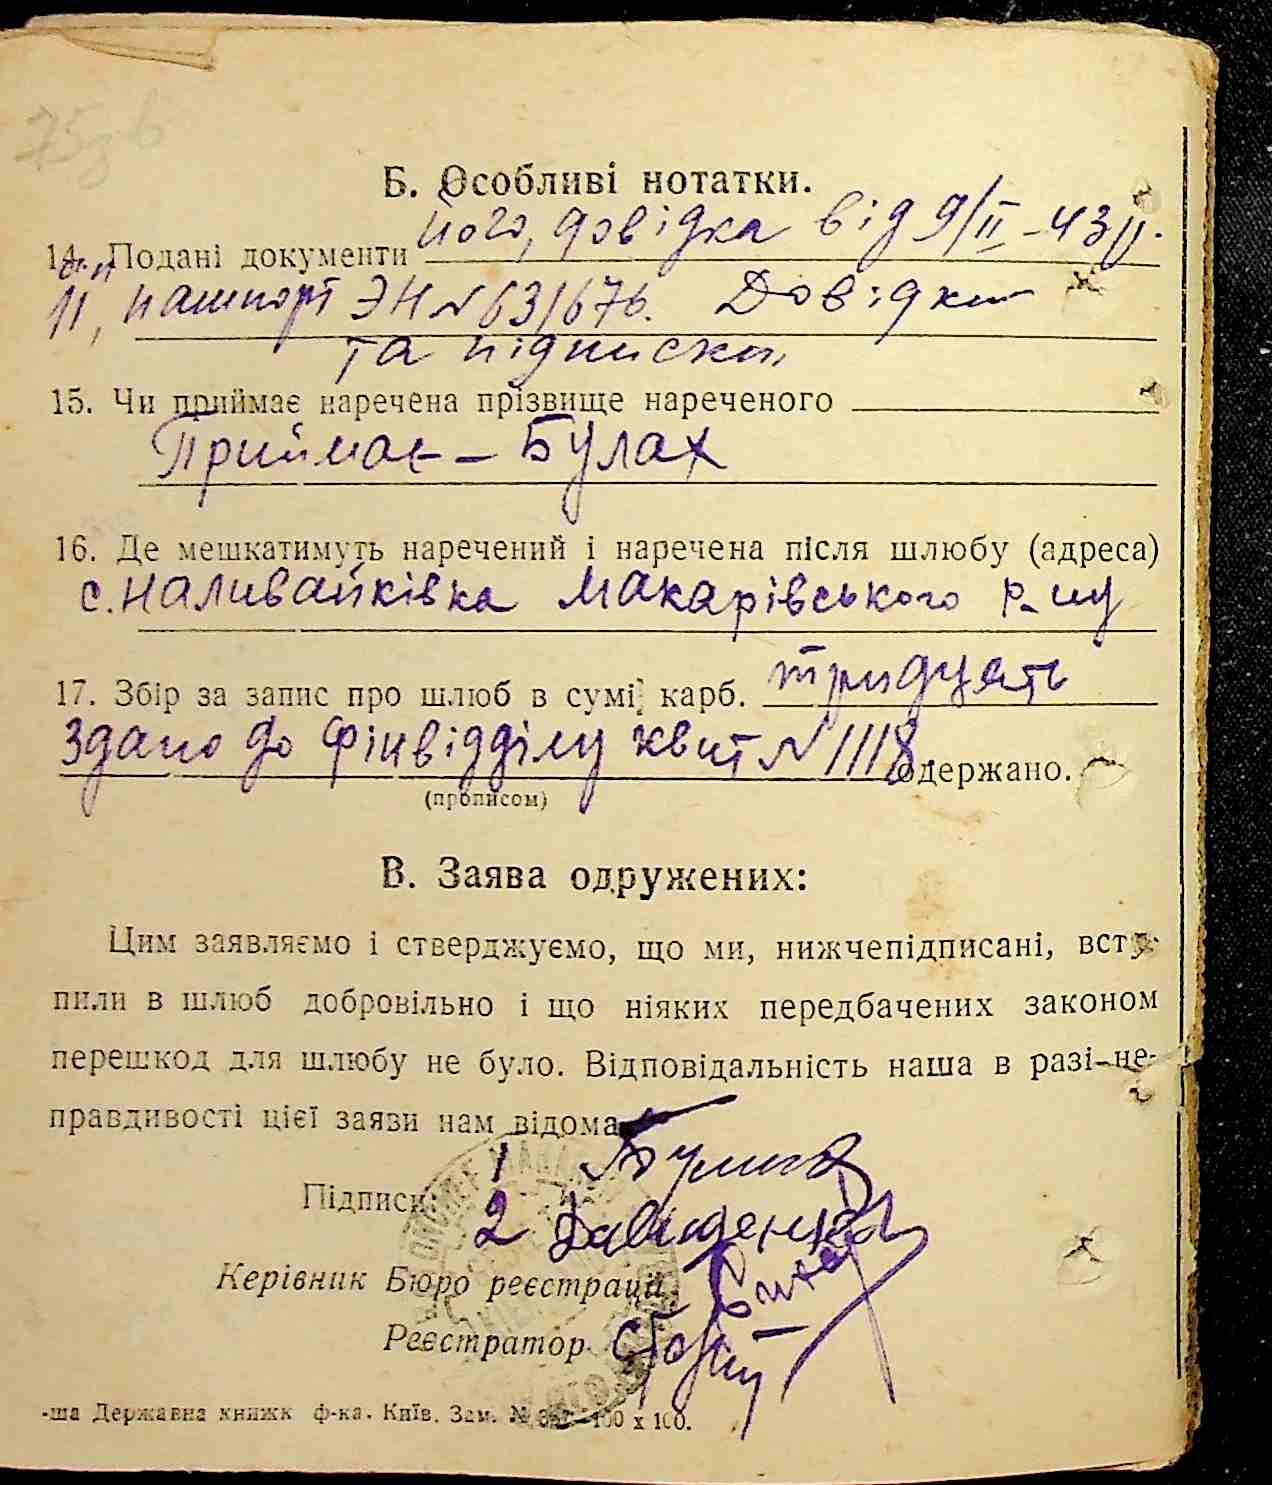 Б. Особливі нотатки.
14. Подані документи його, довідка від 9/II-43 р.
її, пашпорт ЭН № 631676. Довідки
та підписки
15. Чи приймає наречена прізвище нареченого
Приймає – Булах
16. Де мешкатимуть наречений і наречена після шлюбу (адреса)
с. Наливайківка Макарівського р-ну
17. Збір за запис про шлюб в сумі карб. тридцять
Здано до фінвідділу квит № 1118 одержано.
(прописом)
В. Заява одружених:
Цим заявляємо і стверджуємо, що ми, нижчепідписані, всту-
пили в шлюб добровільно і що ніяких передбачених законом
перешкод для шлюбу не було. Відповідальність наша в разі не-
правдивості цієї заяви нам відома
1
Підписи: 2 Давиденко
Керівник Бюро реєстрації
Реєстратор
-ша Державна книжк ф-ка. Київ. Зам. №